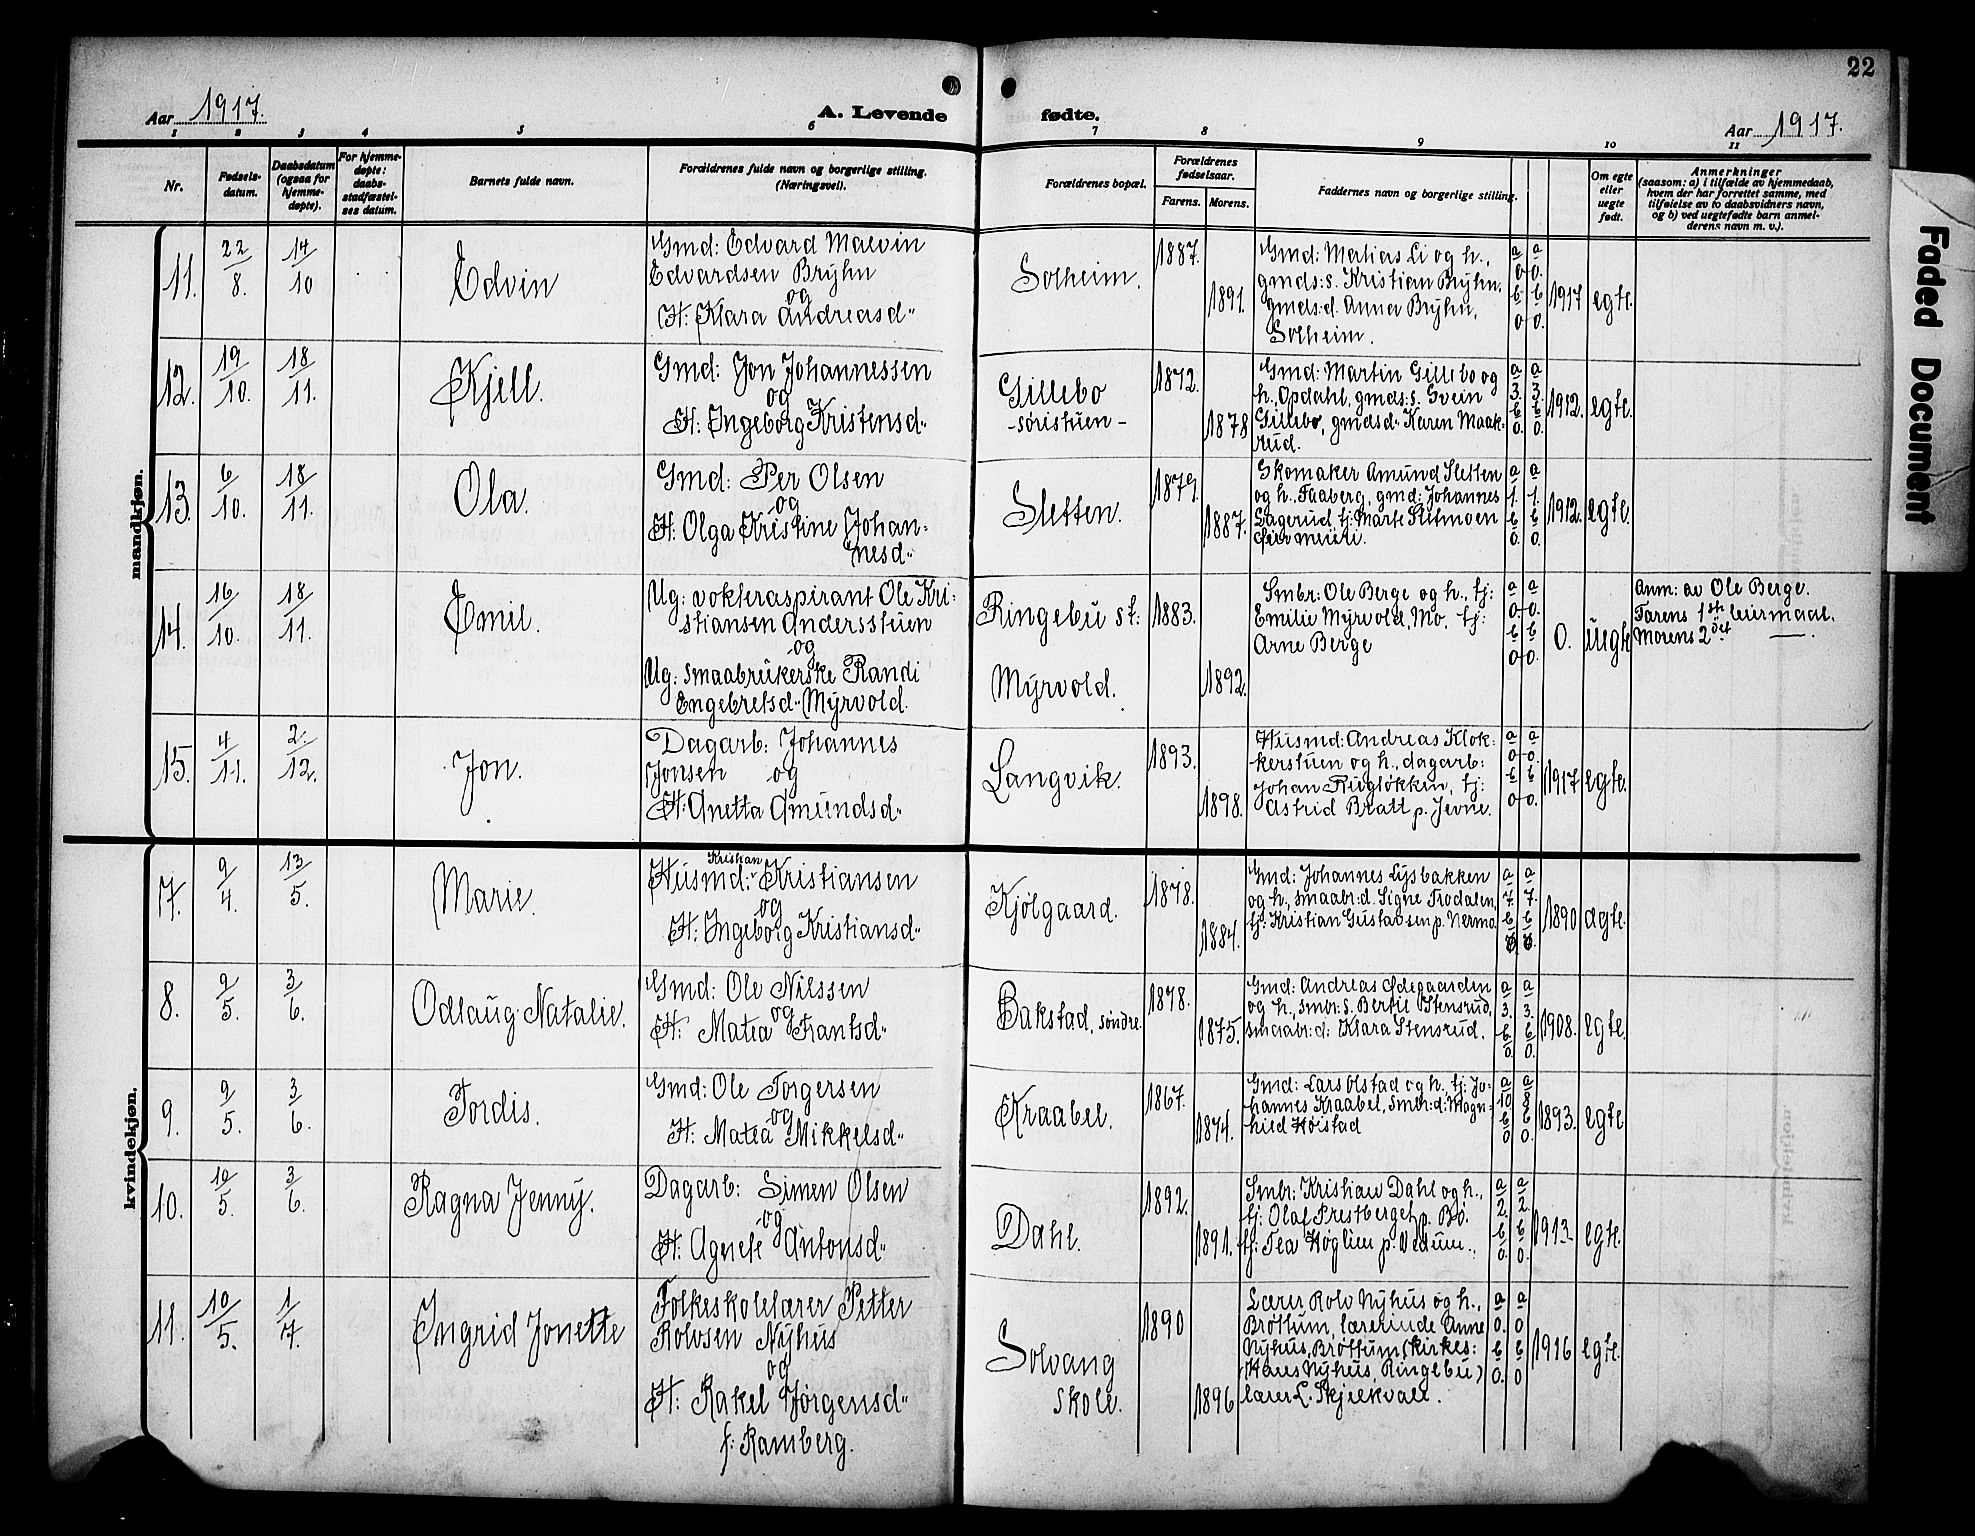 22
Aar 1917.
A. Levende fødte.
Aar 1917.
1 2 3 4 5 6 7 8 9 10 11
Nr.
Fødselsdatum.
Daabsdatum (ogsaa for hjemmedøpte).
For hjemmedøpte: daabsstadfæstelses datum.
Barnets fulde navn.
Forældrenes fulde navn og borgerlige stilling. (Næringsvei).
Forældrenes bopæl.
Forældrenes fødselsaar.
Farens. Morens.
Faddernes navn og borgerlige stilling.
Om egte eller uegte født.
Anmerkninger
(saasom: a) i tilfælde av hjemmedaab,
hvem der har forrettet samme, med
tilføielse av to daabsvidners navn,
og b) ved uegtefødte barn anmelderens navn m. v.).
mandkjøn.
11. 22/8. 14/10 Edvin
Gmd: Edvard Malvin
Edvardsen Bryhn
og
H: Klara Andreasd..
Solheim. 1887. 1891.
Gmd: Matias Li og h.,
gmds: s. Kristian Bryhn,
gmds: d. Anna Bryhn,
Solheim.
a 0 b 0 a 0. b 0. 1917 egte.
12. 19/10. 18/11. Kjell.
Gmd: Jon Johannessen
og
H: Ingeborg Kristensd..
Gillebo
-søristuen-
1872. 1878
Gmd: Martin Gillebo og
h. Opdahl, gmds: s. Svein
Gillebo, gmdsd.. Karen Maak-
rud.
a 3. b 0. a 3. b 0. 1912. egte.
13. 6/10. 18/11. Ola.
Gmd: Per Olsen
og
H: Olga Kristine Johan-
nesd..
Sletten. 1879. 1887.
Skomaker Amund Sletten
og h. Faaberg, gmd: Johannes
Lagerud tj: Marte Slitmoen
a 1. b 0. a 1. b 0. 1912. egte.
14. 16/10. 18/11. Emil.
Ug: vokteraspirant Ole Kri-
stiansen Andersstuen
og
Ug: smaabrukerske Randi
Engebretsd.. Myrvold.
Ringebu st:
Myrvold.
1883. 1892.
Smbr: Ole Berge og h., tj:
Emilie Myrvold, Mo, tj:
Arne Berge
a 0 b 0 a 0. b 0. 0. uegte
Anm: av Ole Berge.
Farens 1ste leiermaal.
Morens 2det —
15. 4/11. 2./12. Jon.
Dagarb: Johannes
Jonsen og
H: Anetta Amundsd..
Langvik. 1893. 1898.
Husmd: Andreas Klok-
kerstuen og h., dagarb:
Johan Rugløkken, tj:
Astrid Bratt p. Jevne.
a 0 b 0 a 0. b 0. 1917 egte.
kvindekjøn.
7. 9/4. 13/5. Marie.
Kristian
Husmd: Kristiansen
og
H: Ingeborg Kristiansd..
Kjølgaard. 1878. 1884.
Gmd: Johannes Lysbakken
og h., smaabr: d. Signe Frodalen,
tj: Kristian Gustavsen p. Nermo
a 7. b a 7. b 1890 egte.
8. 9/5. 3/6. Odlaug Natalie.
Gmd: Ole Nilssen
og
H: Matea Frantsd..
Bakstad, søndre. 1878. 1875.
Gmd: Andreas Ødegaarden
og h., smbr: s. Bertil Stensrud,
smaabr: d: Klara Stensrud.
a 3. b 0. a 3. b 0. 1908. egte.
9. 9/5. 3/6. Tordis.
Gmd: Ole Torgersen
og
H: Matea Mikkelsd..
Kraabel. 1867. 1874.
Gmd: Lars Olstad og h. tj: Jo-
hannes Kraabel, smbr: d: Magn-
hild Høistad
a 10 b 0 a 8 b 0. 1893. egte
10. 10/5. 3/6. Ragna Jenny.
Dagarb: Simen Olsen
og
H: Agnete Antonsd..
Dahl. 1892. 1891.
Smbr: Kristian Dahl og h.,
tj: Olaf Prestberget p. Bø.
tj: Tea Høglien p. Vedum.
a 2. b 0. a 2 b 0. 1913 egte.
11. 10/5. 1/7. Ingrid Jonette
Folkeskolelærer Petter
Rolvsen Nyhus
og
H: Rakel Jørgensd..
f: Ramberg.
Solvang
skole.
1890 1896
Lærer Rolv Nyhus og h.,
Brøttum, lærerinde Anne
Nyhus, Brøttum, (kirkes:
Hans Nyhus, Ringebu)
lærer L. Skjelkvale.
a 0. b 0. a 0 b 0 1916 egte.
Faded Document